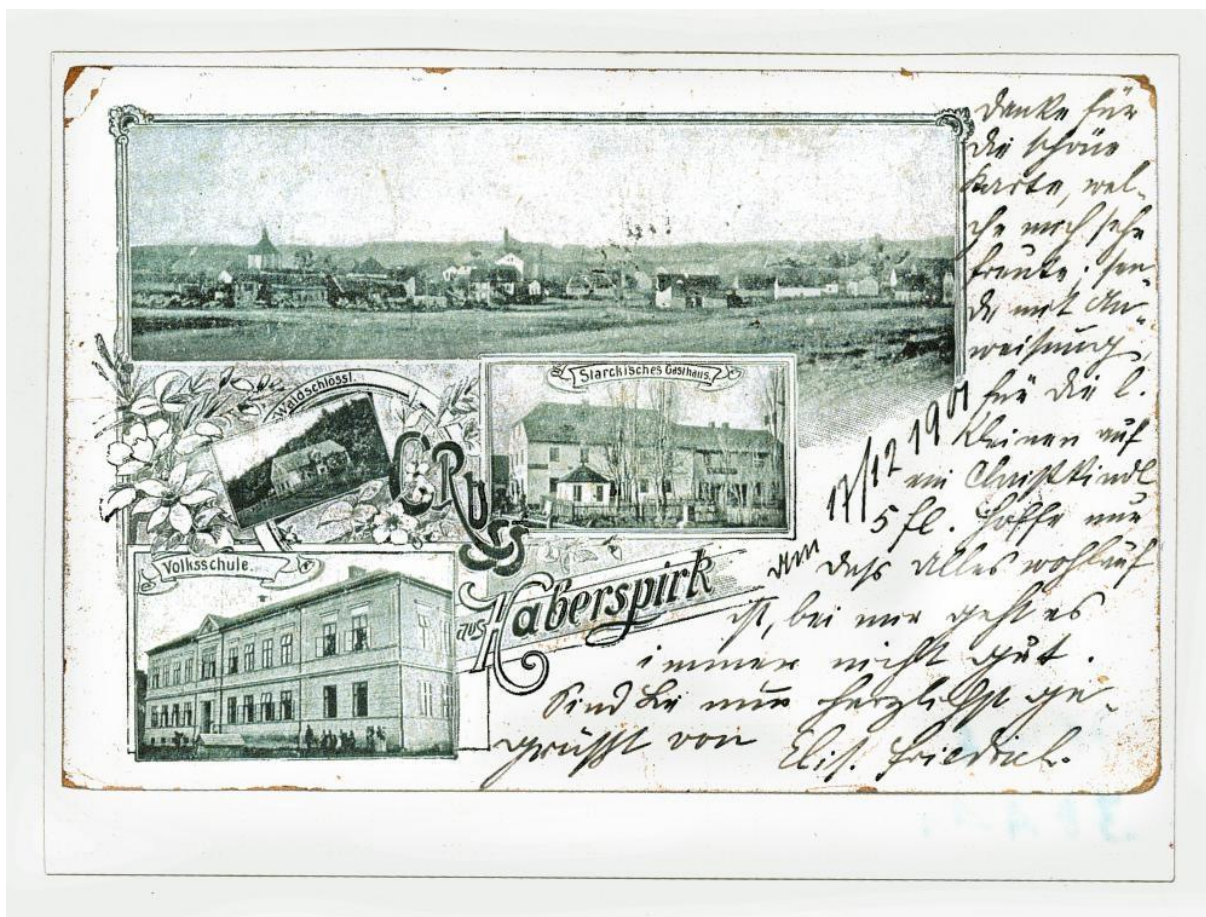 Waldschlössl.
Starckisches Gasthaus.
Volksschule.
GRUSS
aus Haberspirk
am 17/12 1901
Danke für
die schöne
Karte, wel-
che mich sehr
freute. sen-
de mit An-
weisung
für die l.
Kleinen auf
ein Christkindl
5 fl. hoffe nur
dass alles wohlauf
ist, bei mir geht es
immer nicht gut.
Sind Sie nun herzlichst ge-
grüsst von Elis. Friedrich.